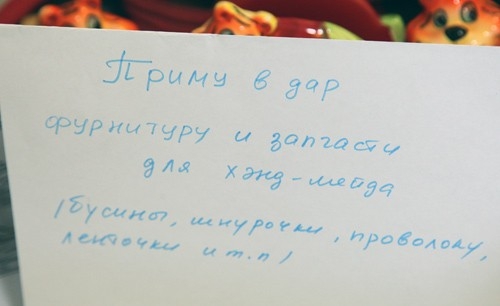 Приму в дар
фурнитуру и запчасти
для хэнд-мейда
(бусины, шнурочки, проволоку,
ленточки и т.п)